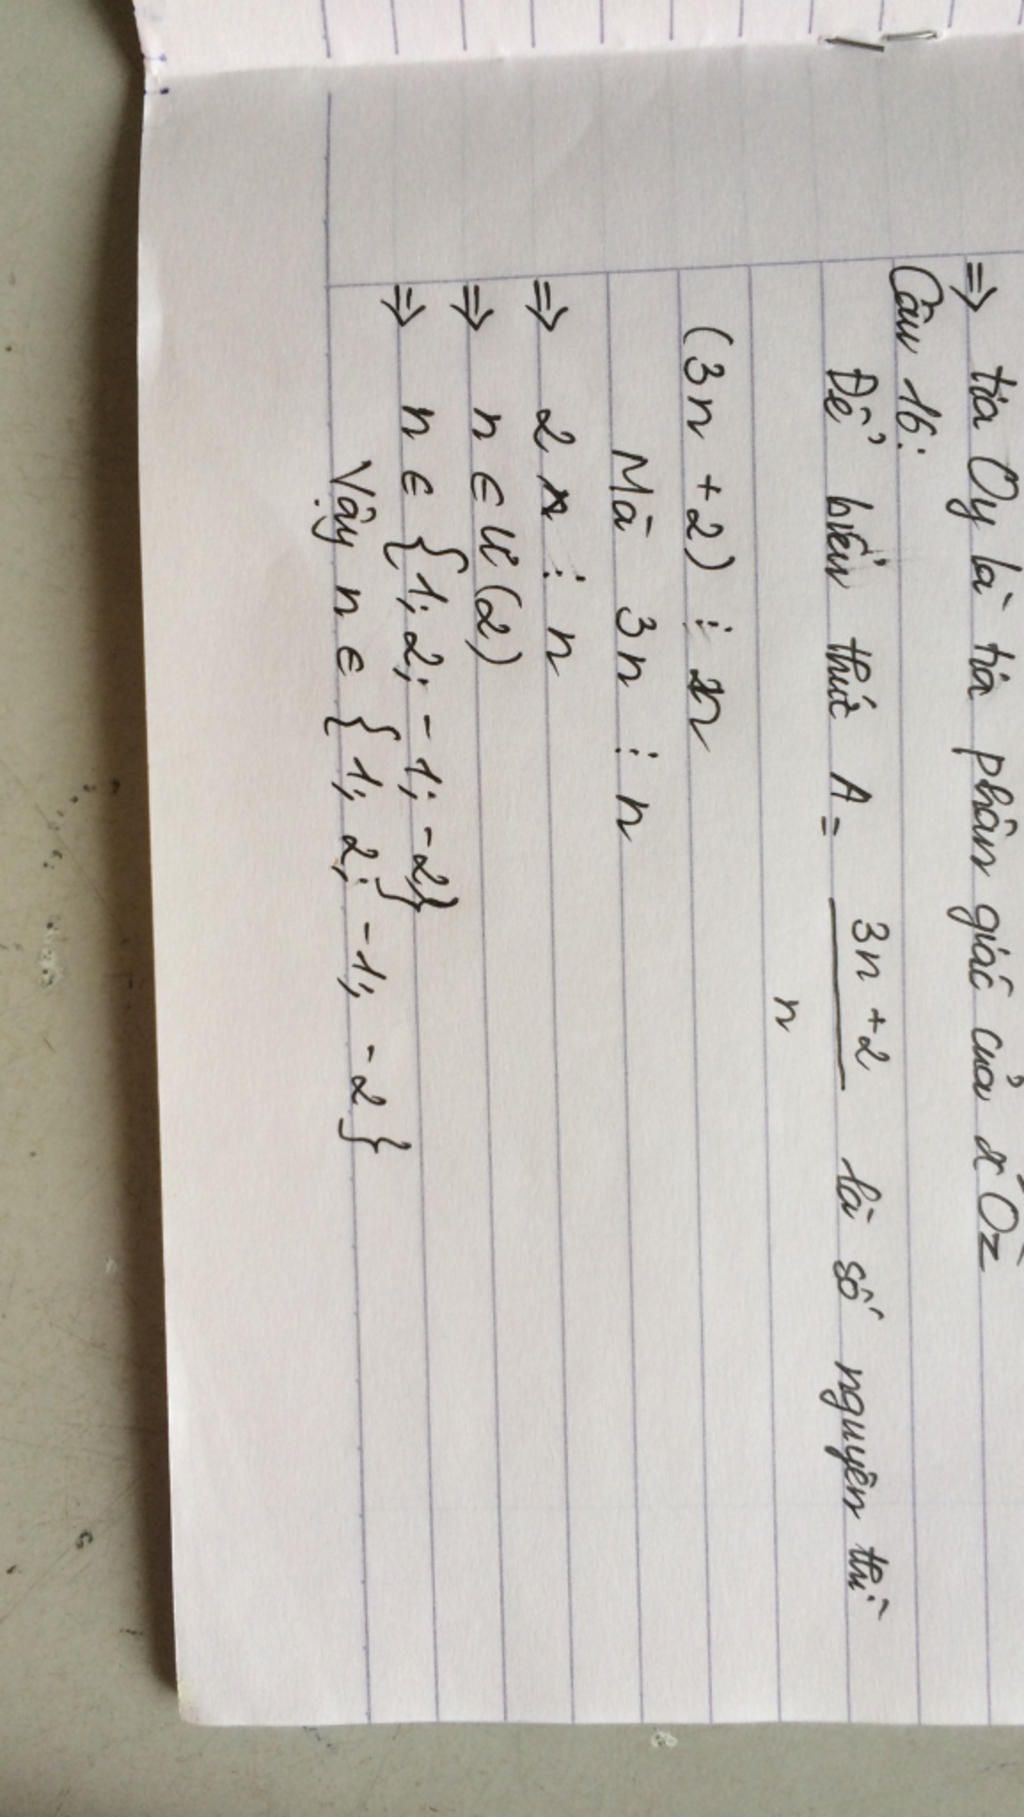 => tia Oy là tia phân giác của xOz
Câu 16:
Để biểu thức A = 3n + 2 là số nguyên thì
n
(3n + 2) ⋮ n
Mà 3n ⋮ n
=> 2 ⋮ n
=> n ∈ Ư(2)
=> n ∈ {1; 2; -1; -2}
Vậy n ∈ {1; 2; -1; -2}